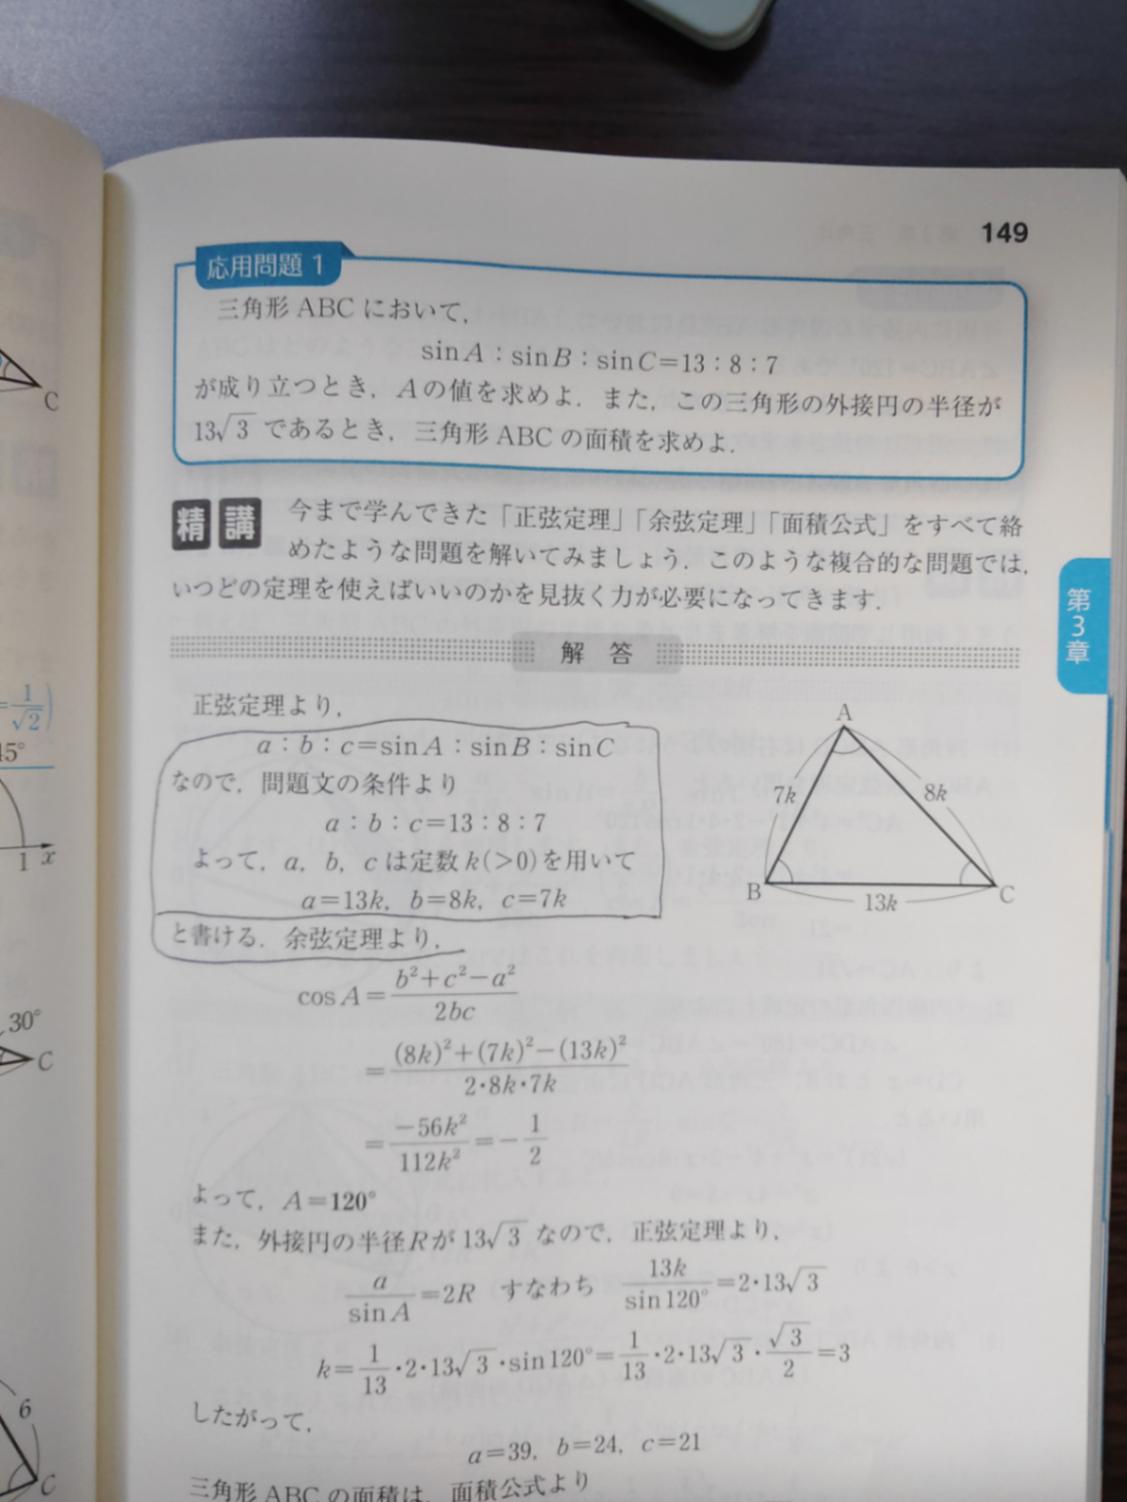 149
応用問題 1
三角形 ABC において,
sin A : sin B : sin C=13 : 8 : 7
が成り立つとき, A の値を求めよ. また, この三角形の外接円の半径が
13√3 であるとき, 三角形 ABC の面積を求めよ.
精 講 今まで学んできた「正弦定理」「余弦定理」「面積公式」をすべて絡
めたような問題を解いてみましょう. このような複合的な問題では,
いつどの定理を使えばいいのかを見抜く力が必要になってきます.
解 答
第3章
正弦定理より,
a : b : c=sin A : sin B : sin C
なので, 問題文の条件より
a : b : c=13 : 8 : 7
よって, a, b, c は定数 k(>0)を用いて
a=13k, b=8k, c=7k
と書ける. 余弦定理より,
A
7k
8k
B
13k
C
cos A= (b²+c²−a²)/(2bc)
= ((8k)²+(7k)²−(13k)²)/(2・8k・7k)
= (−56k²)/(112k²) = −1/2
よって, A=120°
また, 外接円の半径 R が 13√3 なので, 正弦定理より,
a/(sin A)=2R すなわち 13k/(sin 120°)=2・13√3
k= 1/13・2・13√3・sin 120°= 1/13・2・13√3・√3/2=3
したがって,
a=39, b=24, c=21
三角形 ABC の面積は, 面積公式より
C
1/√2)
45°
1 x
30°
C
6
C